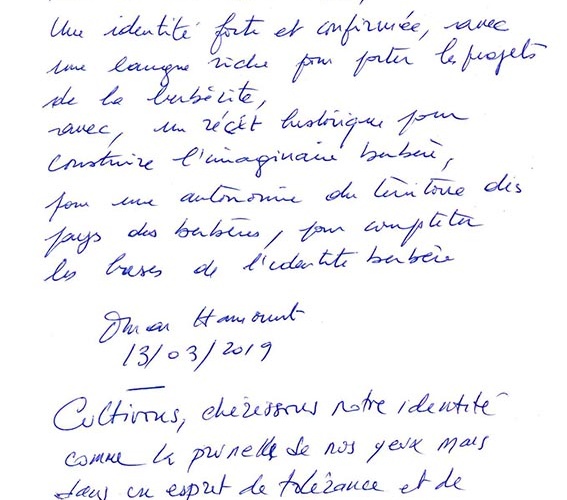 Une identité forte et confirmée, avec
une langue riche pour porter les projets
de la berbérite,
avec, un récit historique pour
construire l'imaginaire berbère,
pour une autonomie du térritoire des
pays des berbères, pour compléter
les bases de l'identité berbère
Omar
13/03/2019
Cultivons, chérissons notre identité
comme la prunelle de nos yeux mais
dans un esprit de tolérance et de